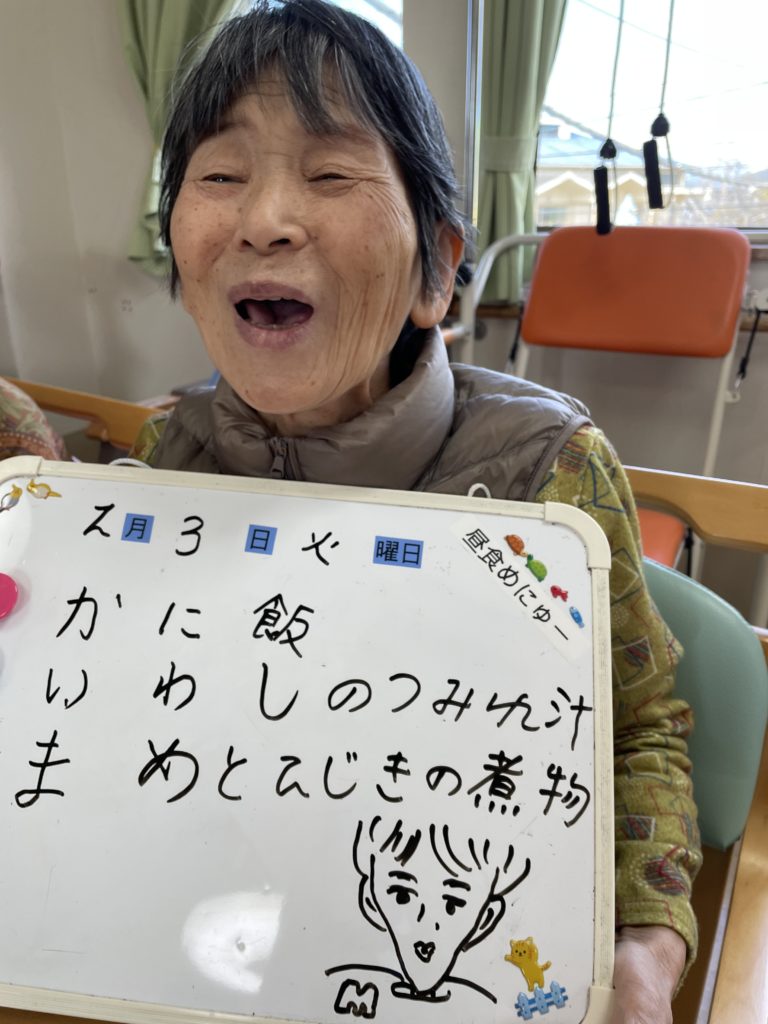 2月3日火曜日
昼食めにゅー
かに飯
いわしのつみれ汁
まめとひじきの煮物
M